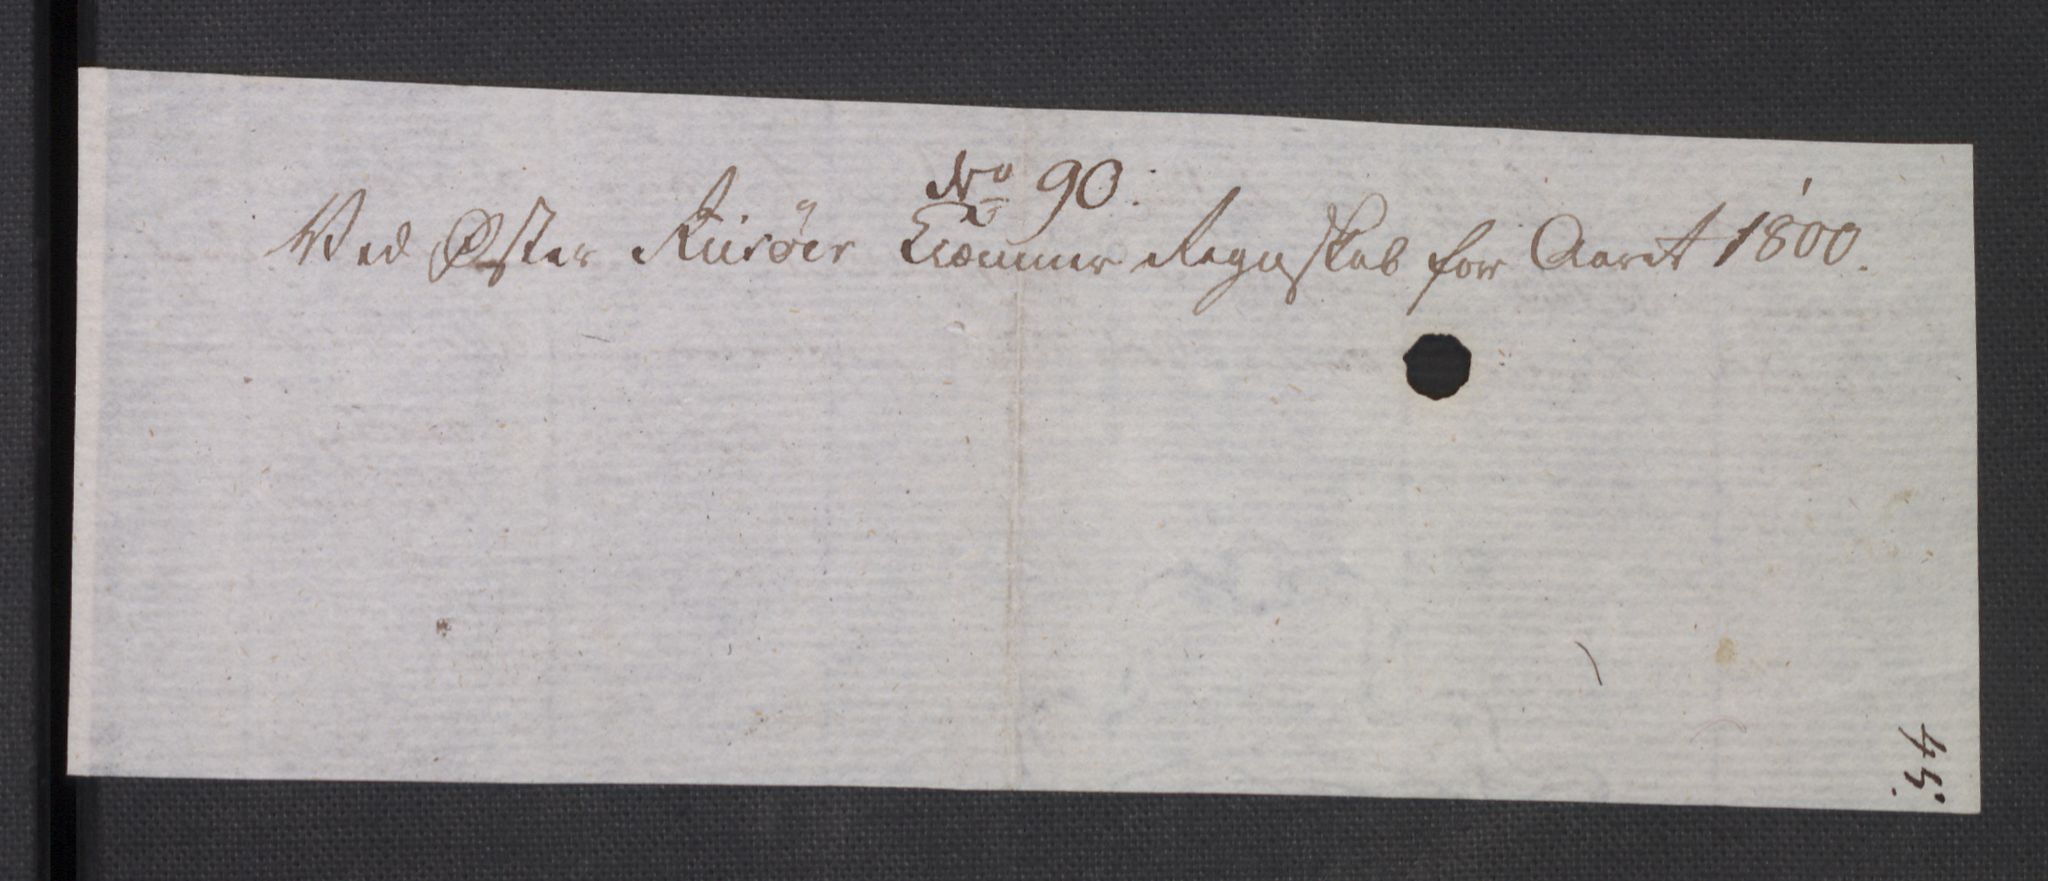 No 90.
Ved Øster Riisöer Kiæmner Regnskab for Aaret 1800.
45.